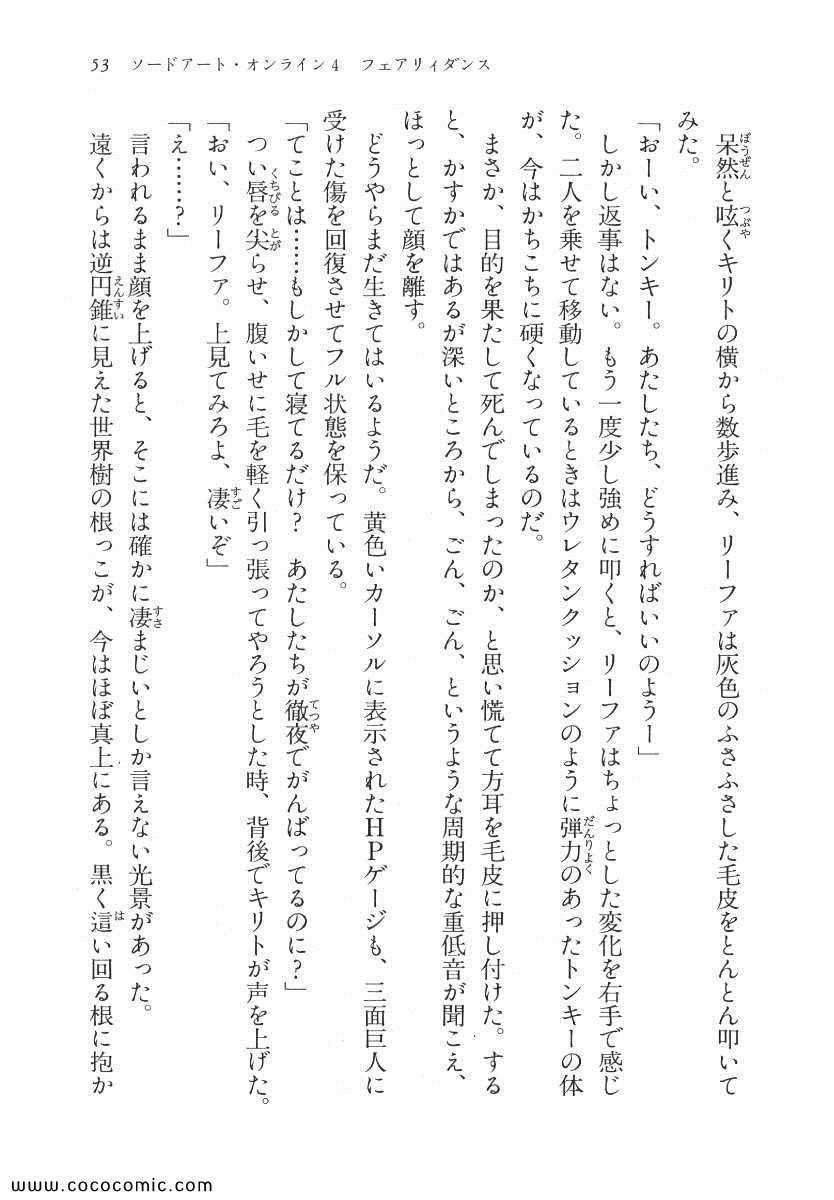 53 ソードアート・オンライン4 フェアリィダンス
呆然と呟くキリトの横から数歩進み、リーファは灰色のふさふさした毛皮をとんとん叩いて
みた。
「おーい、トンキー。あたしたち、どうすればいいのようー」
しかし返事はない。もう一度少し強めに叩くと、リーファはちょっとした変化を右手で感じ
た。二人を乗せて移動しているときはウレタンクッションのように弾力のあったトンキーの体
が、今はかちこちに硬くなっているのだ。
まさか、目的を果たして死んでしまったのか、と思い慌てて方耳を毛皮に押し付けた。する
と、かすかではあるが深いところから、ごん、ごん、というような周期的な重低音が聞こえ、
ほっとして顔を離す。
どうやらまだ生きてはいるようだ。黄色いカーソルに表示されたHPゲージも、三面巨人に
受けた傷を回復させてフル状態を保っている。
「てことは……もしかして寝てるだけ？　あたしたちが徹夜でがんばってるのに？」
つい唇を尖らせ、腹いせに毛を軽く引っ張ってやろうとした時、背後でキリトが声を上げた。
「おい、リーファ。上見てみろよ、凄いぞ」
「え……？」
言われるまま顔を上げると、そこには確かに凄まじいとしか言えない光景があった。
遠くからは逆円錐に見えた世界樹の根っこが、今はほぼ真上にある。黒く這い回る根に抱か
www.cococomic.com/